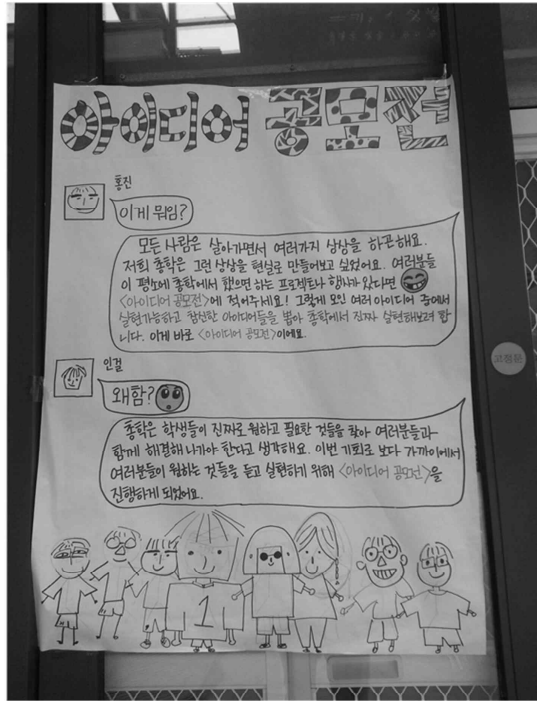 아이디어 공모전
홍진
이게 뭐임?
모든 사람은 살아가면서 여러가지 상상을 하곤해요.
저희 총학은 그런 상상을 현실로 만들어보고 싶었어요. 여러분들
이 평소에 총학에서 했으면 하는 프로젝트나 행사가 있다면
<아이디어 공모전>에 적어주세요! 그렇게 모인 여러 아이디어 중에서
실현가능하고 참신한 아이디어들을 뽑아 총학에서 진짜 실현해보려 합
니다. 이게 바로 <아이디어 공모전>이에요.
인걸
왜함?
총학은 학생들이 진짜로 원하고 필요한 것들을 찾아 여러분들과
함께 해결해 나가야 한다고 생각해요. 이번 기회로 보다 가까이에서
여러분들이 원하는 것들을 듣고 실현하기 위해 <아이디어 공모전>을
진행하게 되었어요.
1
고정문